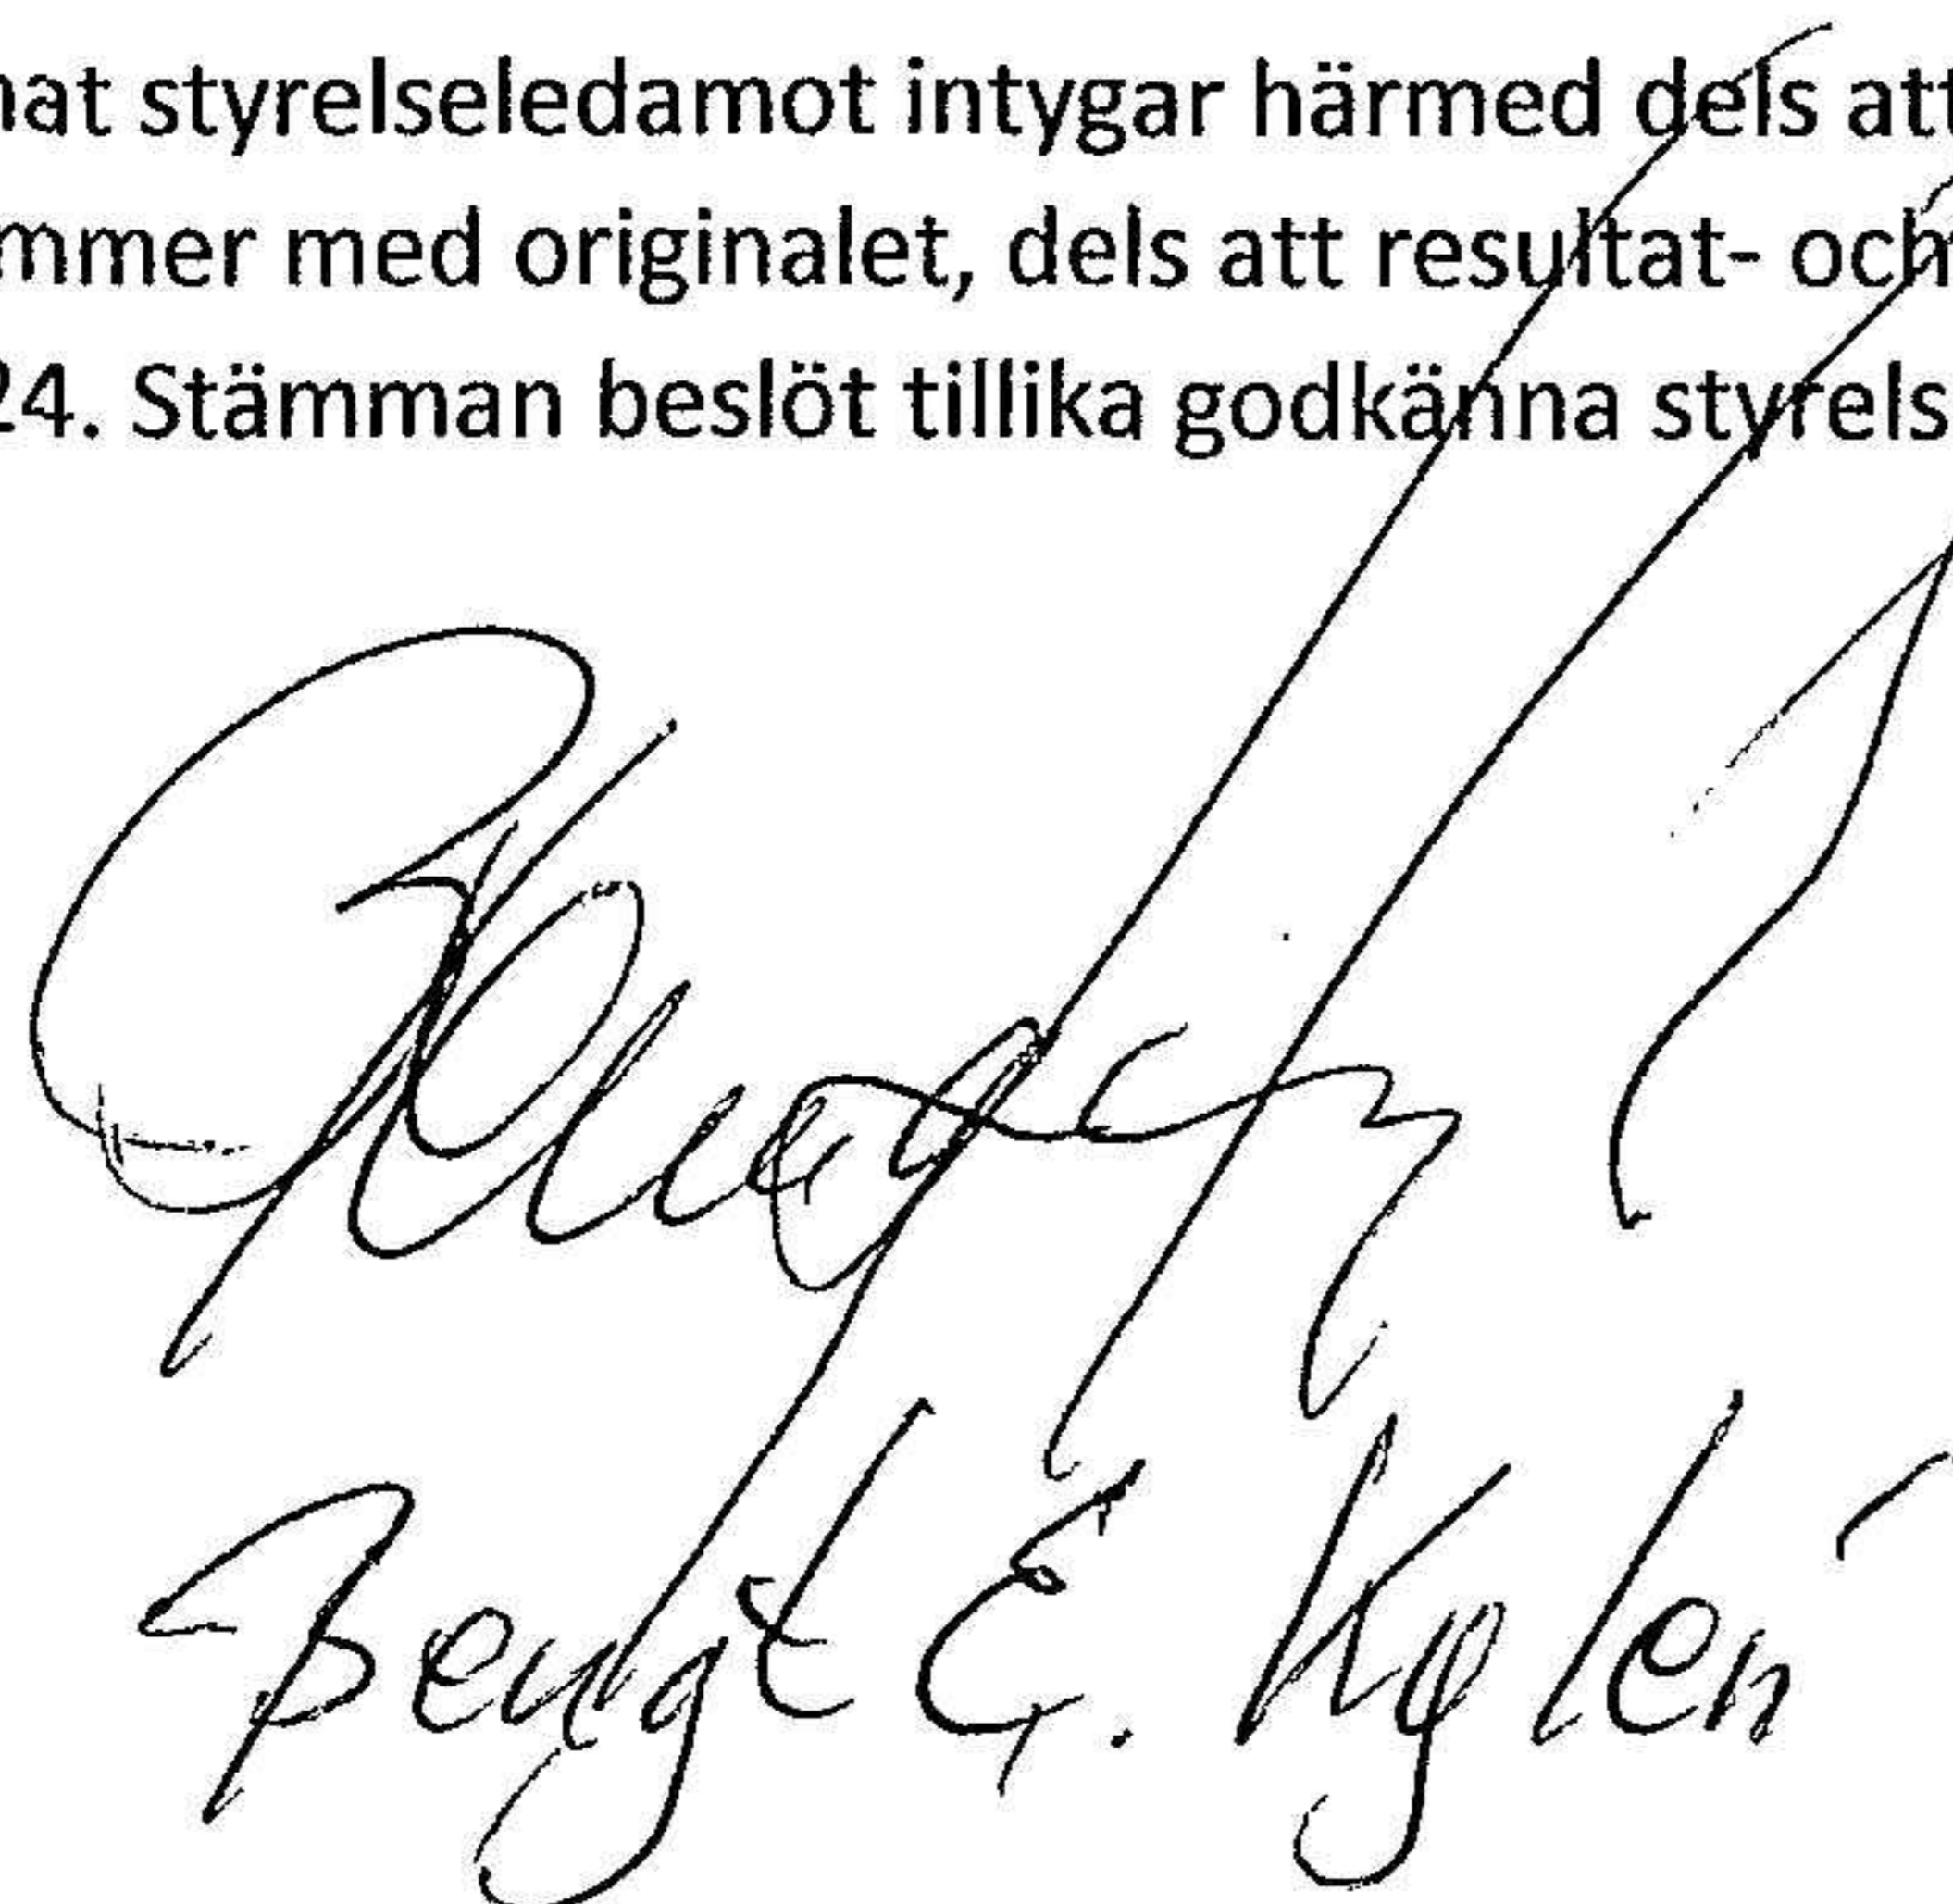 nat styrelseledamot intygar härmed dels att
mmer med originalet, dels att resultat- och
24. Stämman beslöt tillika godkänna styrels
Bengt E. Kylén